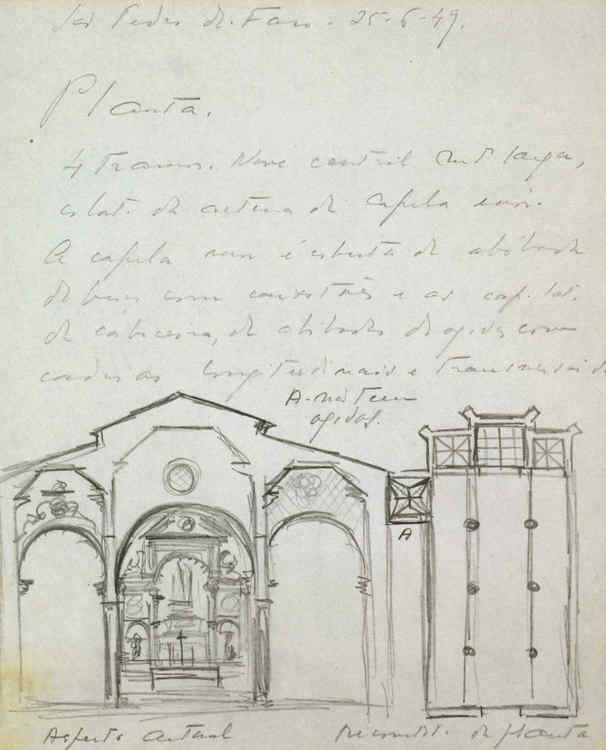 São Pedro de Faro. 25-6-49.
Planta.
4 Tramos. Nave central mt larga,
da altura da capela
A capela é coberta de abóbada
de berço com caixotões e as cap. lat.
de cabeceira, de abóbadas de ogivas com
cadeias longitudinais e transversais
A-não tem
ogivas.
A
Aspecto actual
de planta